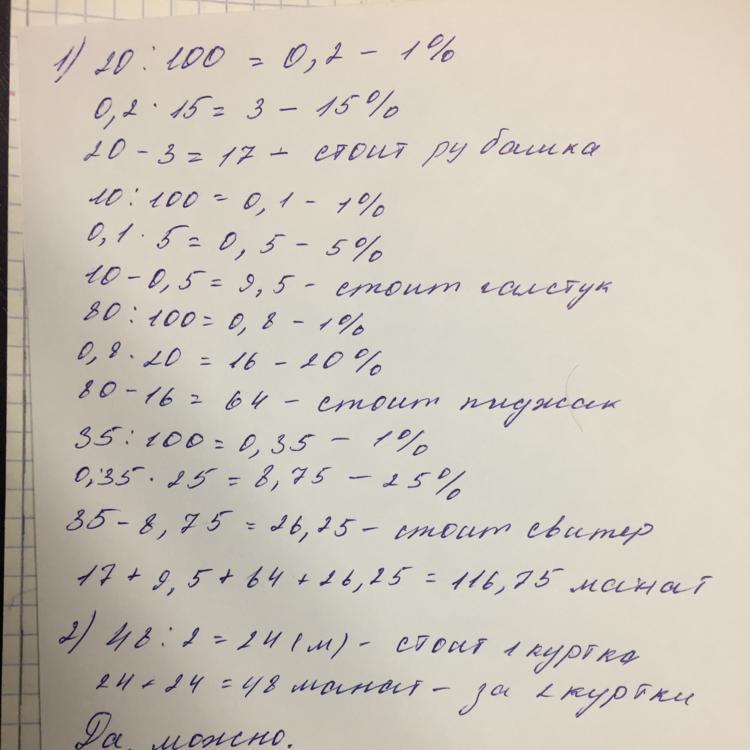 1) 20 : 100 = 0,2 - 1%
0,2 · 15 = 3 - 15%
20 - 3 = 17 - стоит рубашка
10 : 100 = 0,1 - 1%
0,1 · 5 = 0,5 - 5%
10 - 0,5 = 9,5 - стоит галстук
80 : 100 = 0,8 - 1%
0,8 · 20 = 16 - 20%
80 - 16 = 64 - стоит пиджак
35 : 100 = 0,35 - 1%
0,35 · 25 = 8,75 - 25%
35 - 8,75 = 26,25 - стоит свитер
17 + 9,5 + 64 + 26,25 = 116,75 манат
2) 48 : 2 = 24 (м) - стоит 1 куртка
24 + 24 = 48 манат - за 2 куртки
Да, можно.